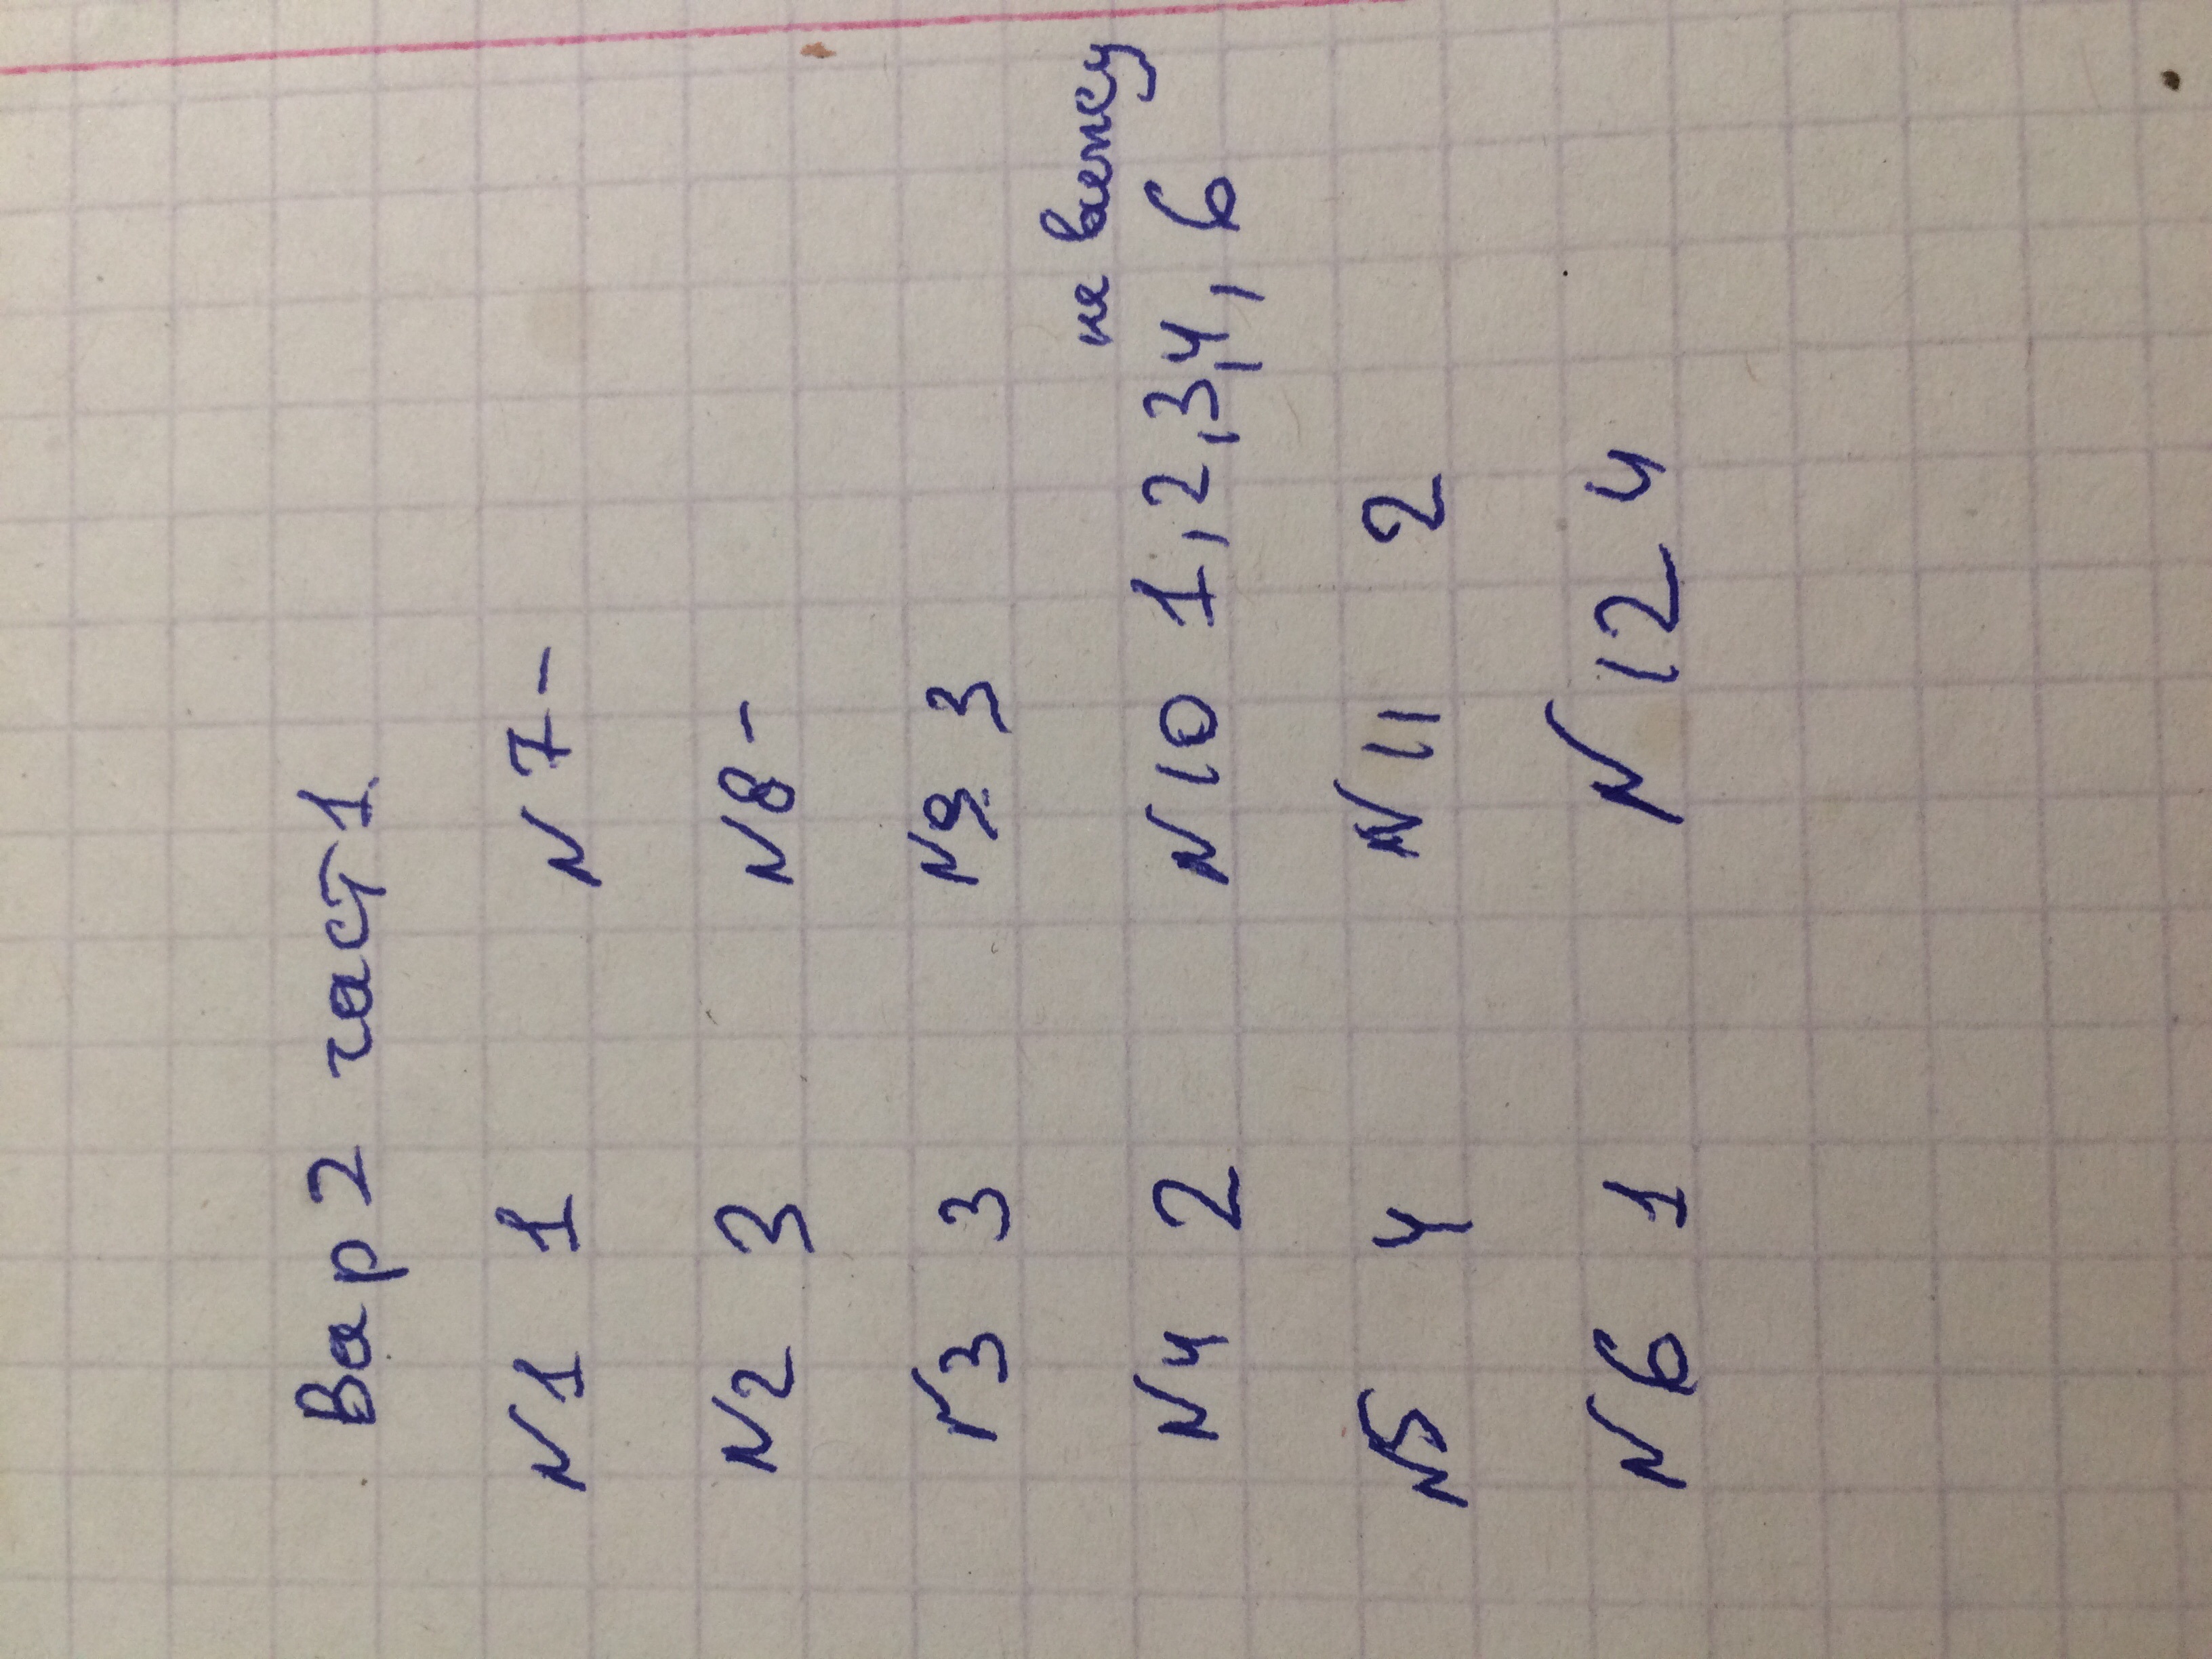 Вар 2 част 1
N1 1 N7 -
N2 3 N8 -
N3 3 N9 3
на
N4 2 N10 1, 2, 3, 4, 6
N5 4 N11 2
N6 1 N12 4